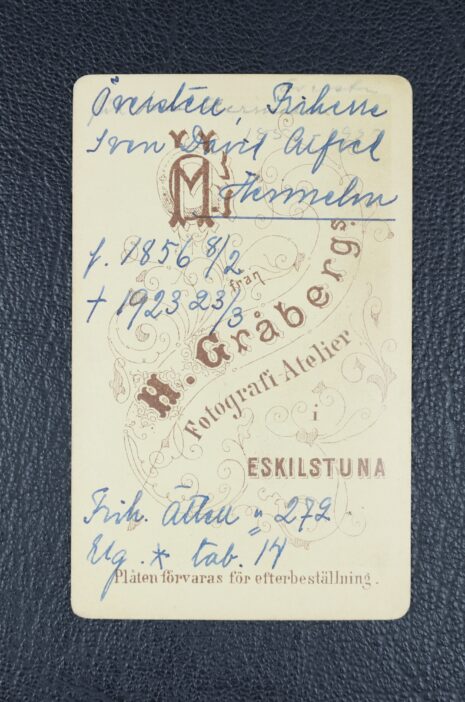 Översten, Friherre
Sven David Alfred
Hermelin
f. 1856 8/2
† 1923 23/3
från
H. Gråbergs.
Fotografi-Atelier
i
ESKILSTUNA
Frih. Ätten " 272
Elg. * tab. 14
Plåten förvaras för efterbeställning.